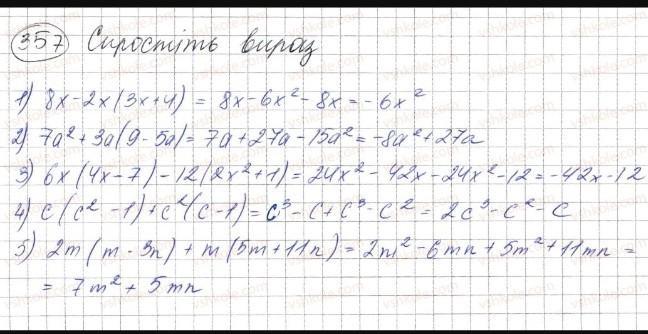 357 Спростіть вираз
1) 8x - 2x(3x+4) = 8x - 6x² - 8x = -6x²
2) 7a² + 3a(9 - 5a) = 7a + 27a - 15a² = -8a² + 27a
3) 6x(4x - 7) - 12(2x² + 1) = 24x² - 42x - 24x² - 12 = -42x - 12
4) c(c² - 1) + c²(c - 1) = c³ - c + c³ - c² = 2c³ - c² - c
5) 2m(m - 3n) + m(5m + 11n) = 2m² - 6mn + 5m² + 11mn =
= 7m² + 5mn